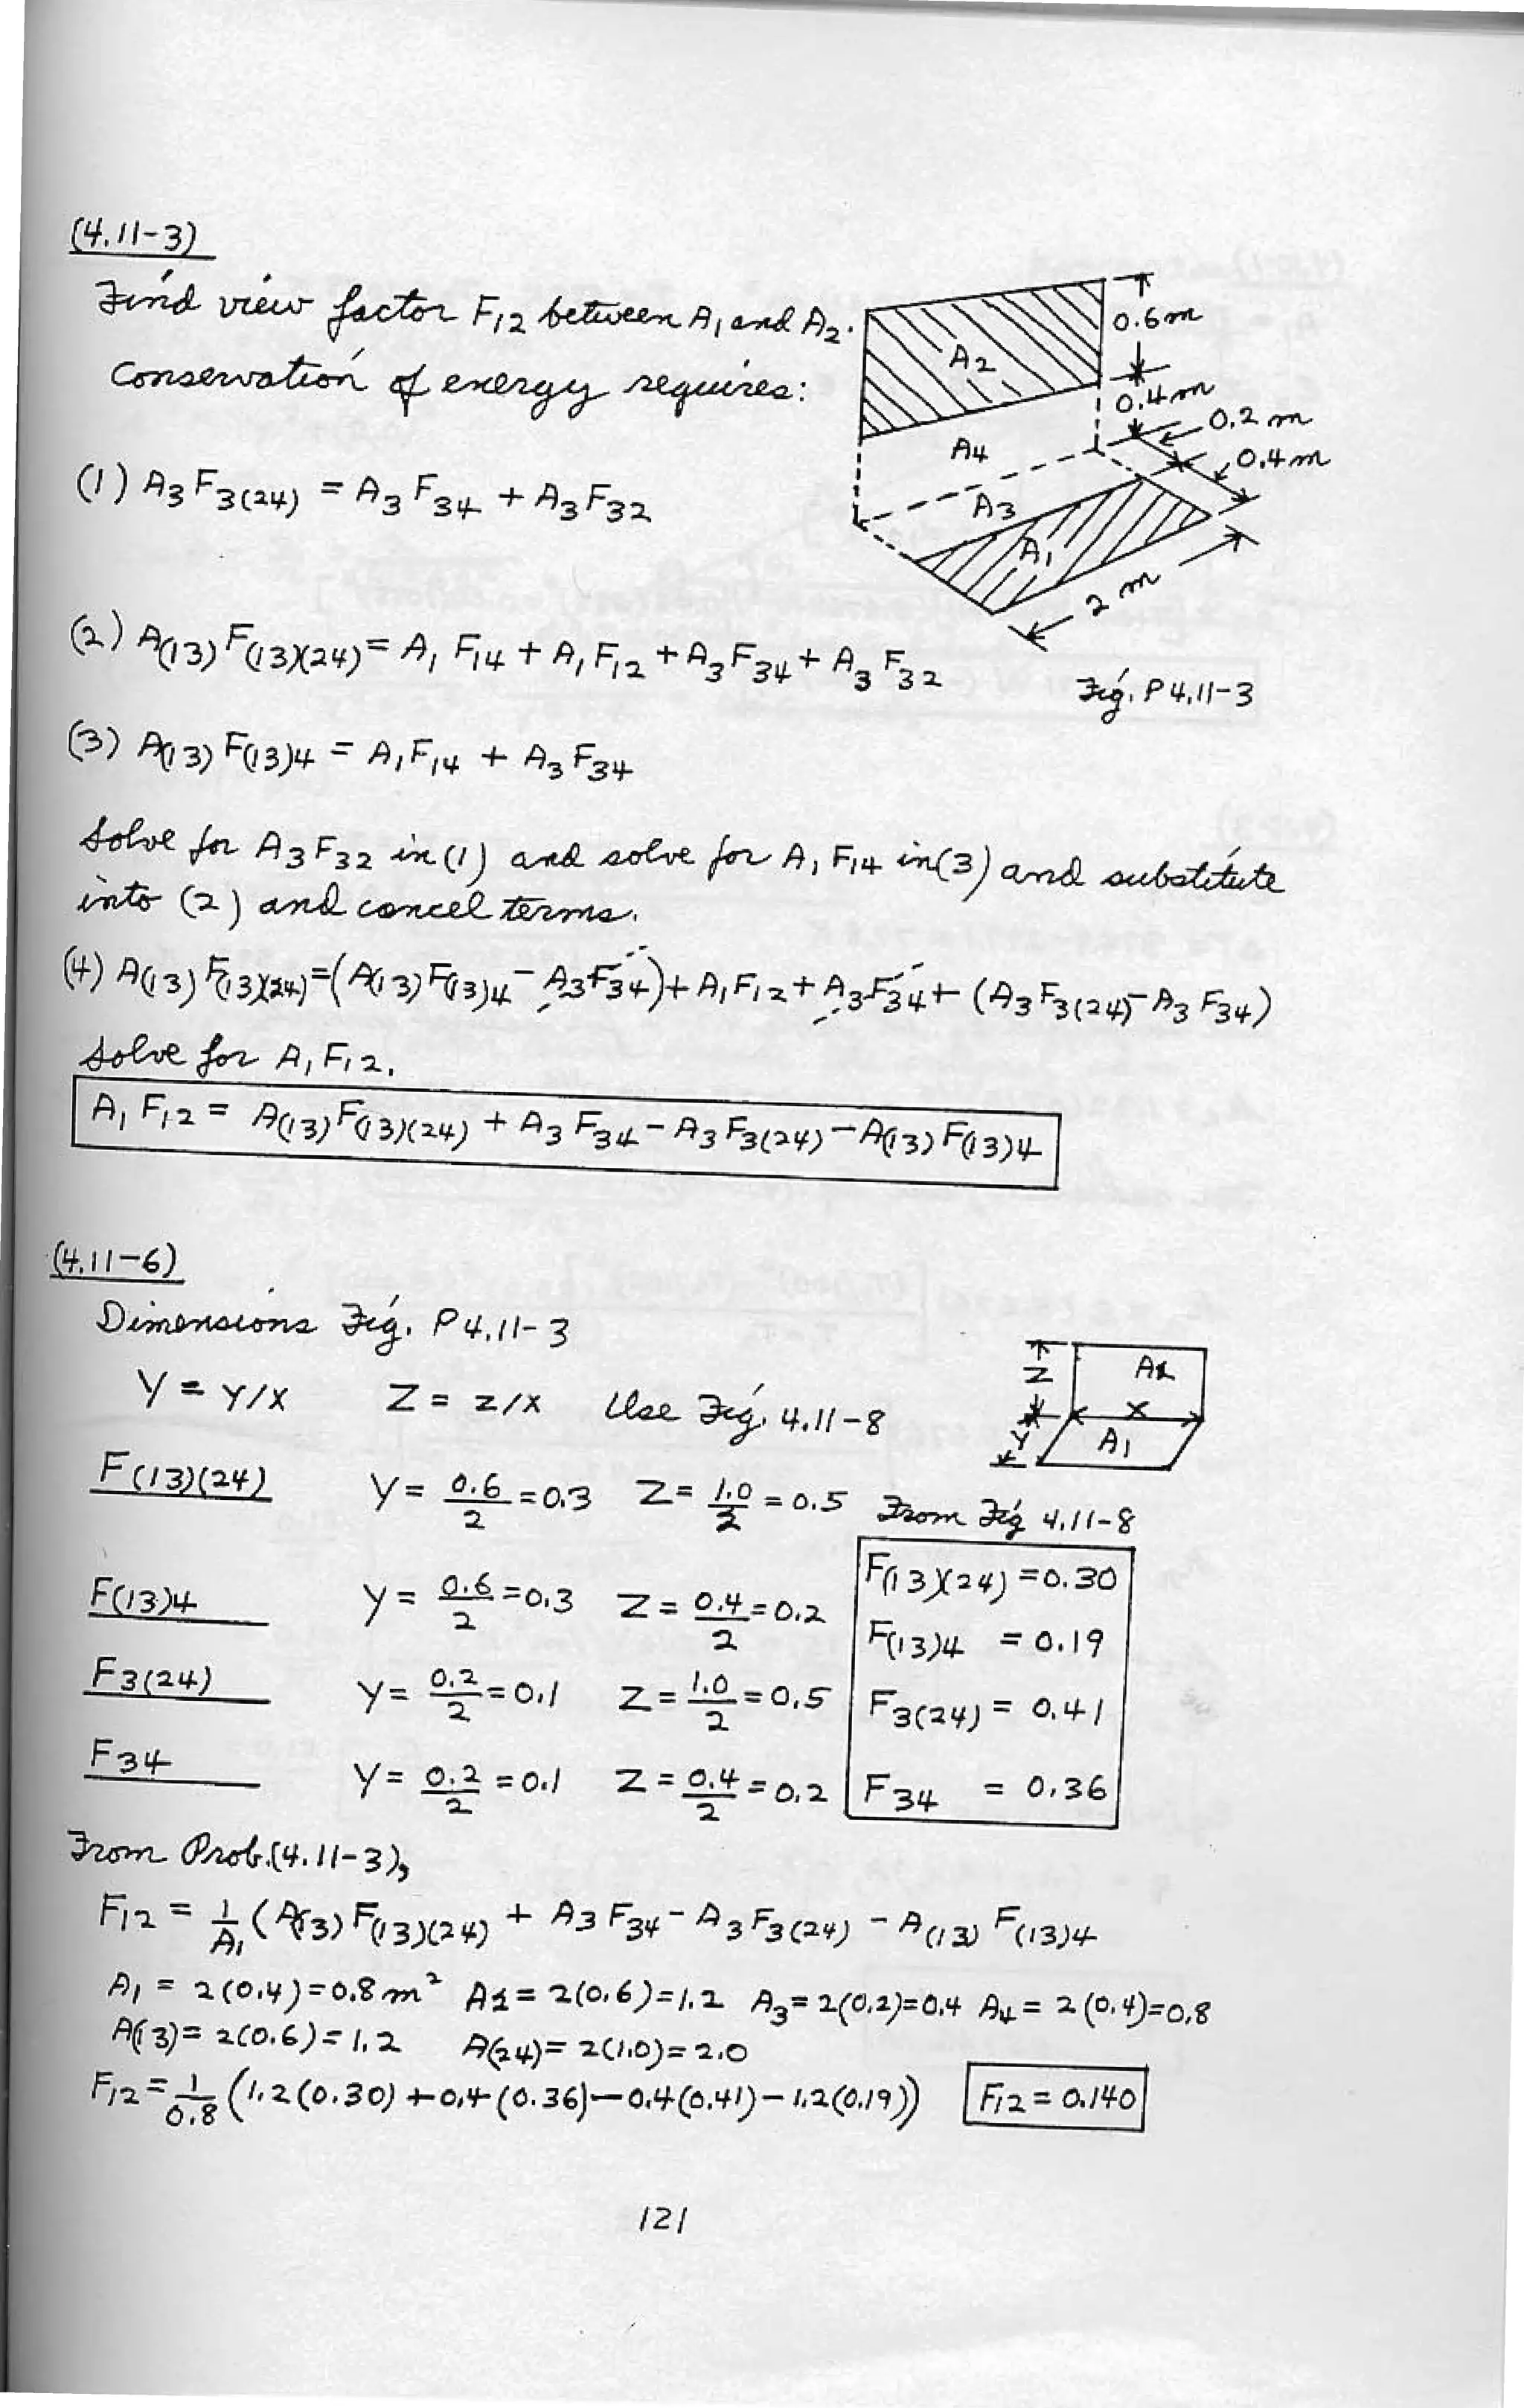 (4.11-3)
Find view factor F12 between A1 and A2.
Conservation of energy requires:
(1) A3 F3(24) = A3 F34 + A3 F32
A2
0.6 m
0.4 m
0.2 m
0.4 m
A4
A3
A1
2 m
Fig. P4.11-3
(2) A(13) F(13)(24) = A1 F14 + A1 F12 + A3 F34 + A3 F32
(3) A(13) F(13)4 = A1 F14 + A3 F34
Solve for A3 F32 in (1) and solve for A1 F14 in (3) and substitute
into (2) and cancel terms.
(4) A(13) F(13)(24) = (A(13) F(13)4 - A3 F34) + A1 F12 + A3 F34 + (A3 F3(24) - A3 F34)
Solve for A1 F12.
A1 F12 = A(13) F(13)(24) + A3 F34 - A3 F3(24) - A(13) F(13)4
(4.11-6)
Dimensions Fig. P4.11-3
Y = Y/X Z = Z/X Use Fig. 4.11-8
Z
A2
X
Y
A1
F(13)(24) Y = 0.6/2 = 0.3 Z = 1.0/2 = 0.5 From Fig 4.11-8
F(13)(24) = 0.30
F(13)4 Y = 0.6/2 = 0.3 Z = 0.4/2 = 0.2
F(13)4 = 0.19
F3(24) Y = 0.2/2 = 0.1 Z = 1.0/2 = 0.5
F3(24) = 0.41
F34 Y = 0.2/2 = 0.1 Z = 0.4/2 = 0.2
F34 = 0.36
From Prob.(4.11-3),
F12 = 1/A1 (A(13) F(13)(24) + A3 F34 - A3 F3(24) - A(13) F(13)4
A1 = 2(0.4) = 0.8 m² A2 = 2(0.6) = 1.2 A3 = 2(0.2) = 0.4 A4 = 2(0.4) = 0.8
A(13) = 2(0.6) = 1.2 A(24) = 2(1.0) = 2.0
F12 = 1/0.8 (1.2(0.30) + 0.4(0.36) - 0.4(0.41) - 1.2(0.19)) F12 = 0.140
121